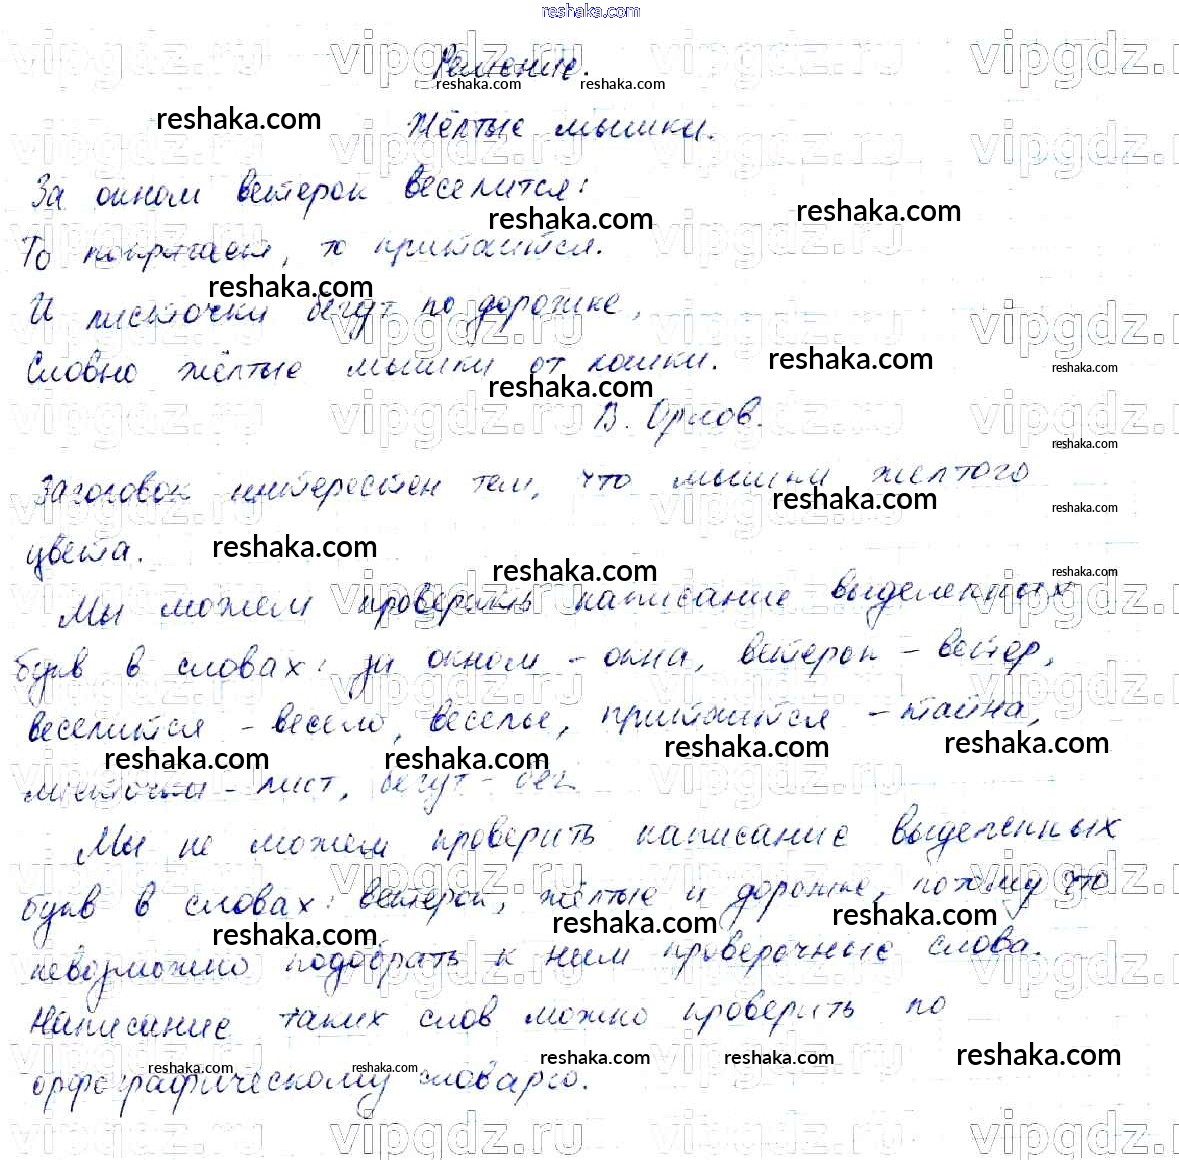 reshaka.com
Решение.
Жёлтые мышки.
За окном ветерок веселится:
То попрыгает, то притаится.
И листочки бегут по дорожке,
Словно жёлтые мышки от кошки.
В. Орлов.
Заголовок интерестен тем, что мышки желтого
цвета.
Мы можем проверить написание выделенных
букв в словах: за окном - окна, ветерок - ветер,
веселится - весело, веселье, притаится - тайна,
листочки - лист, бегут - бег.
Мы не можем проверить написание выделенных
букв в словах: ветерок, жёлтые и дорожке, потому что
невозможно подобрать к ним проверочные слова.
Написание таких слов можно проверить по
орфографическому словарю.